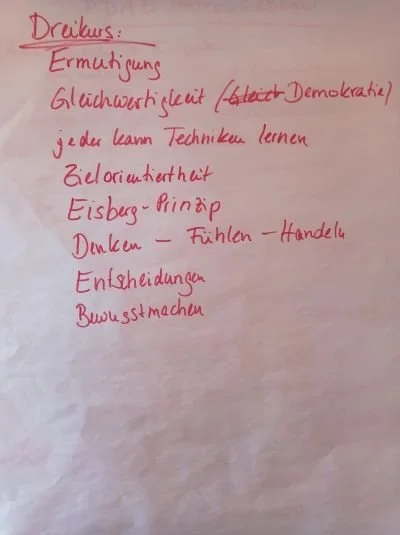 Dreikurs:
Ermutigung
Gleichwertigkeit (Gleich Demokratie)
jeder kann Techniken lernen
Zielorientiertheit
Eisberg-Prinzip
Denken – Fühlen – Handeln
Entscheidungen
Bewusstmachen